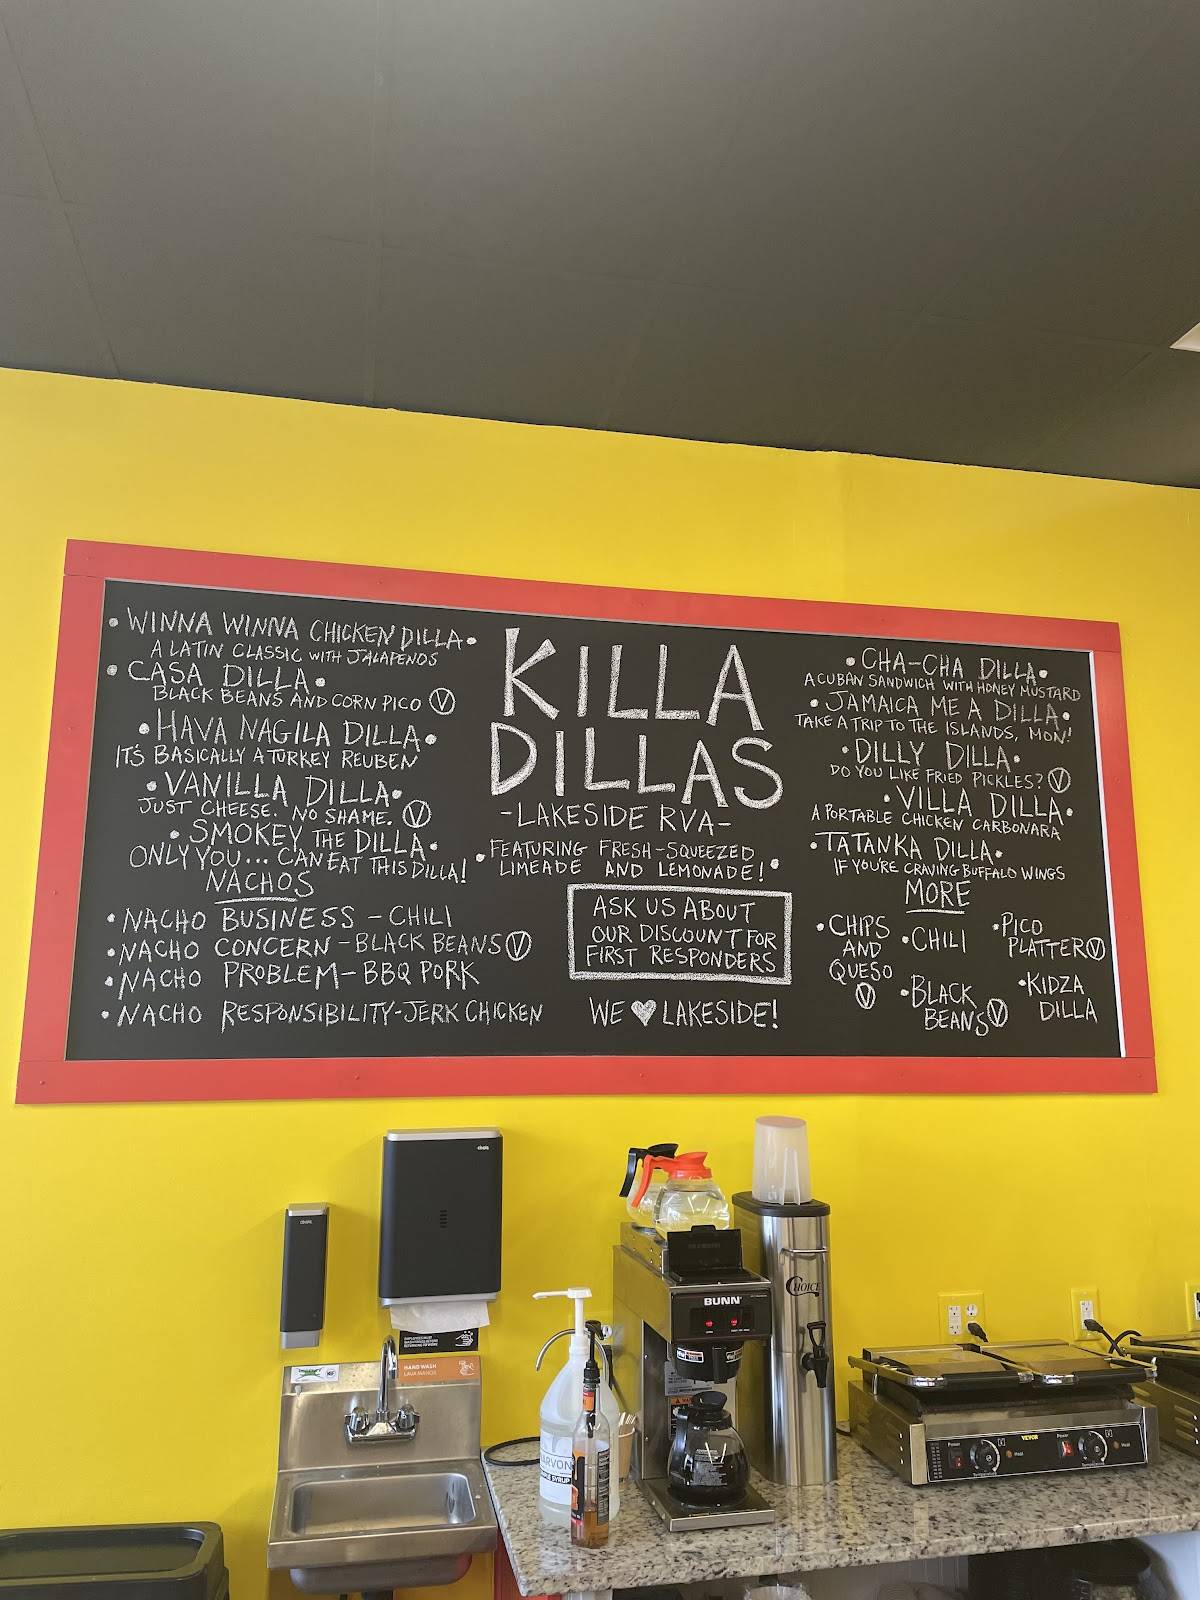 • WINNA WINNA CHICKEN DILLA •
A LATIN CLASSIC WITH JALAPENOS
• CASA DILLA •
BLACK BEANS AND CORN PICO Ⓥ
• HAVA NAGILA DILLA •
IT'S BASICALLY A TURKEY REUBEN
• VANILLA DILLA •
JUST CHEESE. NO SHAME. Ⓥ
• SMOKEY THE DILLA •
ONLY YOU... CAN EAT THIS DILLA!
NACHOS
• NACHO BUSINESS - CHILI
• NACHO CONCERN - BLACK BEANS Ⓥ
• NACHO PROBLEM - BBQ PORK
• NACHO RESPONSIBILITY - JERK CHICKEN
KILLA
DILLAS
- LAKESIDE RVA -
• FEATURING FRESH-SQUEEZED
LIMEADE AND LEMONADE! •
ASK US ABOUT
OUR DISCOUNT FOR
FIRST RESPONDERS
WE ♥ LAKESIDE!
• CHA-CHA DILLA •
A CUBAN SANDWICH WITH HONEY MUSTARD
• JAMAICA ME A DILLA •
TAKE A TRIP TO THE ISLANDS, MON!
• DILLY DILLA •
DO YOU LIKE FRIED PICKLES? Ⓥ
• VILLA DILLA •
A PORTABLE CHICKEN CARBONARA
• TATANKA DILLA •
IF YOU'RE CRAVING BUFFALO WINGS
MORE
• CHIPS
AND
QUESO
Ⓥ
• CHILI
• BLACK
BEANS Ⓥ
• PICO
PLATTER Ⓥ
• KIDZA
DILLA
BUNN
CHOICE
HAND WASH
LAVA MANOS
NSF
VEVOR
Power
Heat
Power
Heat